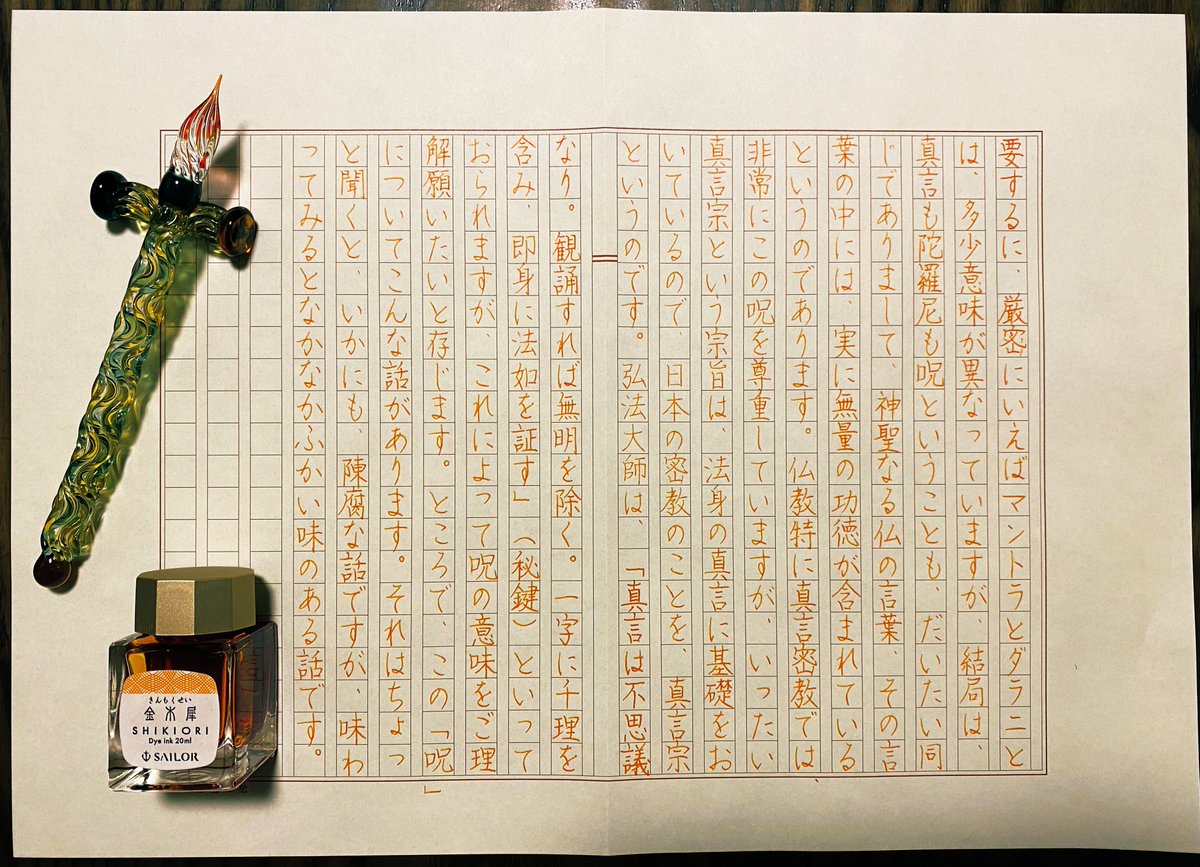 要するに、厳密にいえばマントラとダラニと
は、多少意味が異なっていますが、結局は、
真言も陀羅尼も呪ということも、だいたい同
じでありまして、神聖なる仏の言葉、その言
葉の中には、実に無量の功徳が含まれている
というのであります。仏教特に真言密教では、
非常にこの呪を尊重していますが、いったい
真言宗という宗旨は、法身の真言に基礎をお
いているので、日本の密教のことを、真言宗
というのです。弘法大師は、「真言は不思議
なり。観誦すれば無明を除く。一字に千理を
含み、即身に法如を証す」（秘鍵）といって
おられますが、これによって呪の意味をご理
解願いたいと存じます。ところで、この「呪」
についてこんな話があります。それはちょっ
と聞くと、いかにも、陳腐な話ですが、味わ
ってみるとなかなかふかい味のある話です。
きんもくせい
金木犀
SHIKIORI
Dye ink 20ml
SAILOR